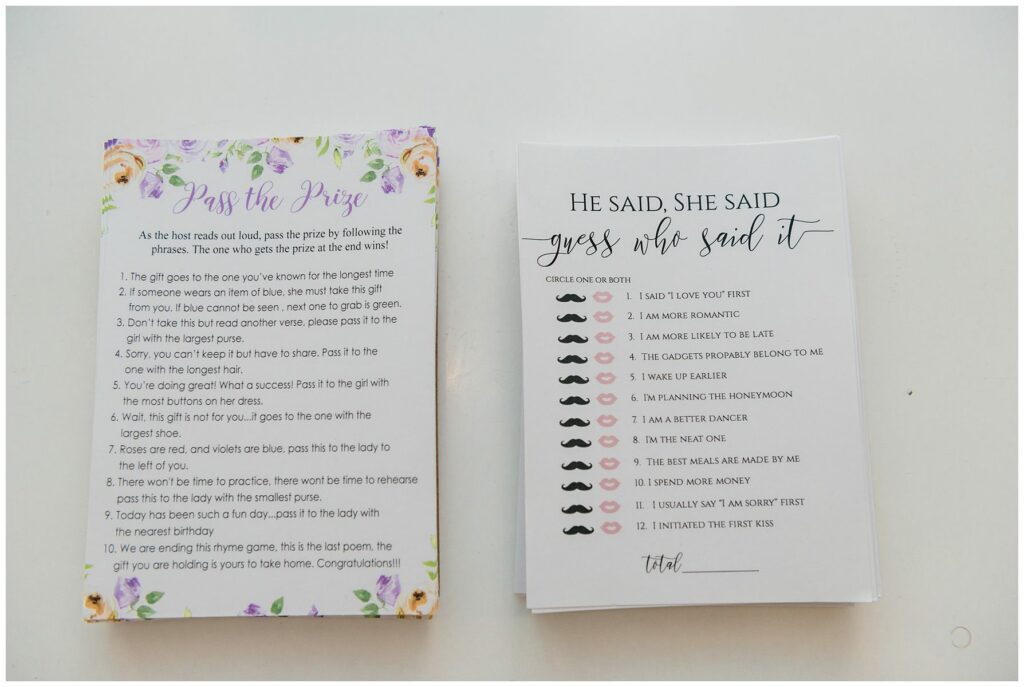 Pass the Prize
As the host reads out loud, pass the prize by following the
phrases. The one who gets the prize at the end wins!
1. The gift goes to the one you've known for the longest time
2. If someone wears an item of blue, she must take this gift
from you. If blue cannot be seen , next one to grab is green.
3. Don't take this but read another verse, please pass it to the
girl with the largest purse.
4. Sorry, you can't keep it but have to share. Pass it to the
one with the longest hair.
5. You're doing great! What a success! Pass it to the girl with
the most buttons on her dress.
6. Wait, this gift is not for you...it goes to the one with the
largest shoe.
7. Roses are red, and violets are blue, pass this to the lady to
the left of you.
8. There won't be time to practice, there wont be time to rehearse
pass this to the lady with the smallest purse.
9. Today has been such a fun day...pass it to the lady with
the nearest birthday
10. We are ending this rhyme game, this is the last poem, the
gift you are holding is yours to take home. Congratulations!!!
He said, She said
guess who said it
CIRCLE ONE OR BOTH
1. I SAID "I LOVE YOU" FIRST
2. I AM MORE ROMANTIC
3. I AM MORE LIKELY TO BE LATE
4. THE GADGETS PROPABLY BELONG TO ME
5. I WAKE UP EARLIER
6. I'M PLANNING THE HONEYMOON
7. I AM A BETTER DANCER
8. I'M THE NEAT ONE
9. THE BEST MEALS ARE MADE BY ME
10. I SPEND MORE MONEY
11. I USUALLY SAY "I AM SORRY" FIRST
12. I INITIATED THE FIRST KISS
total